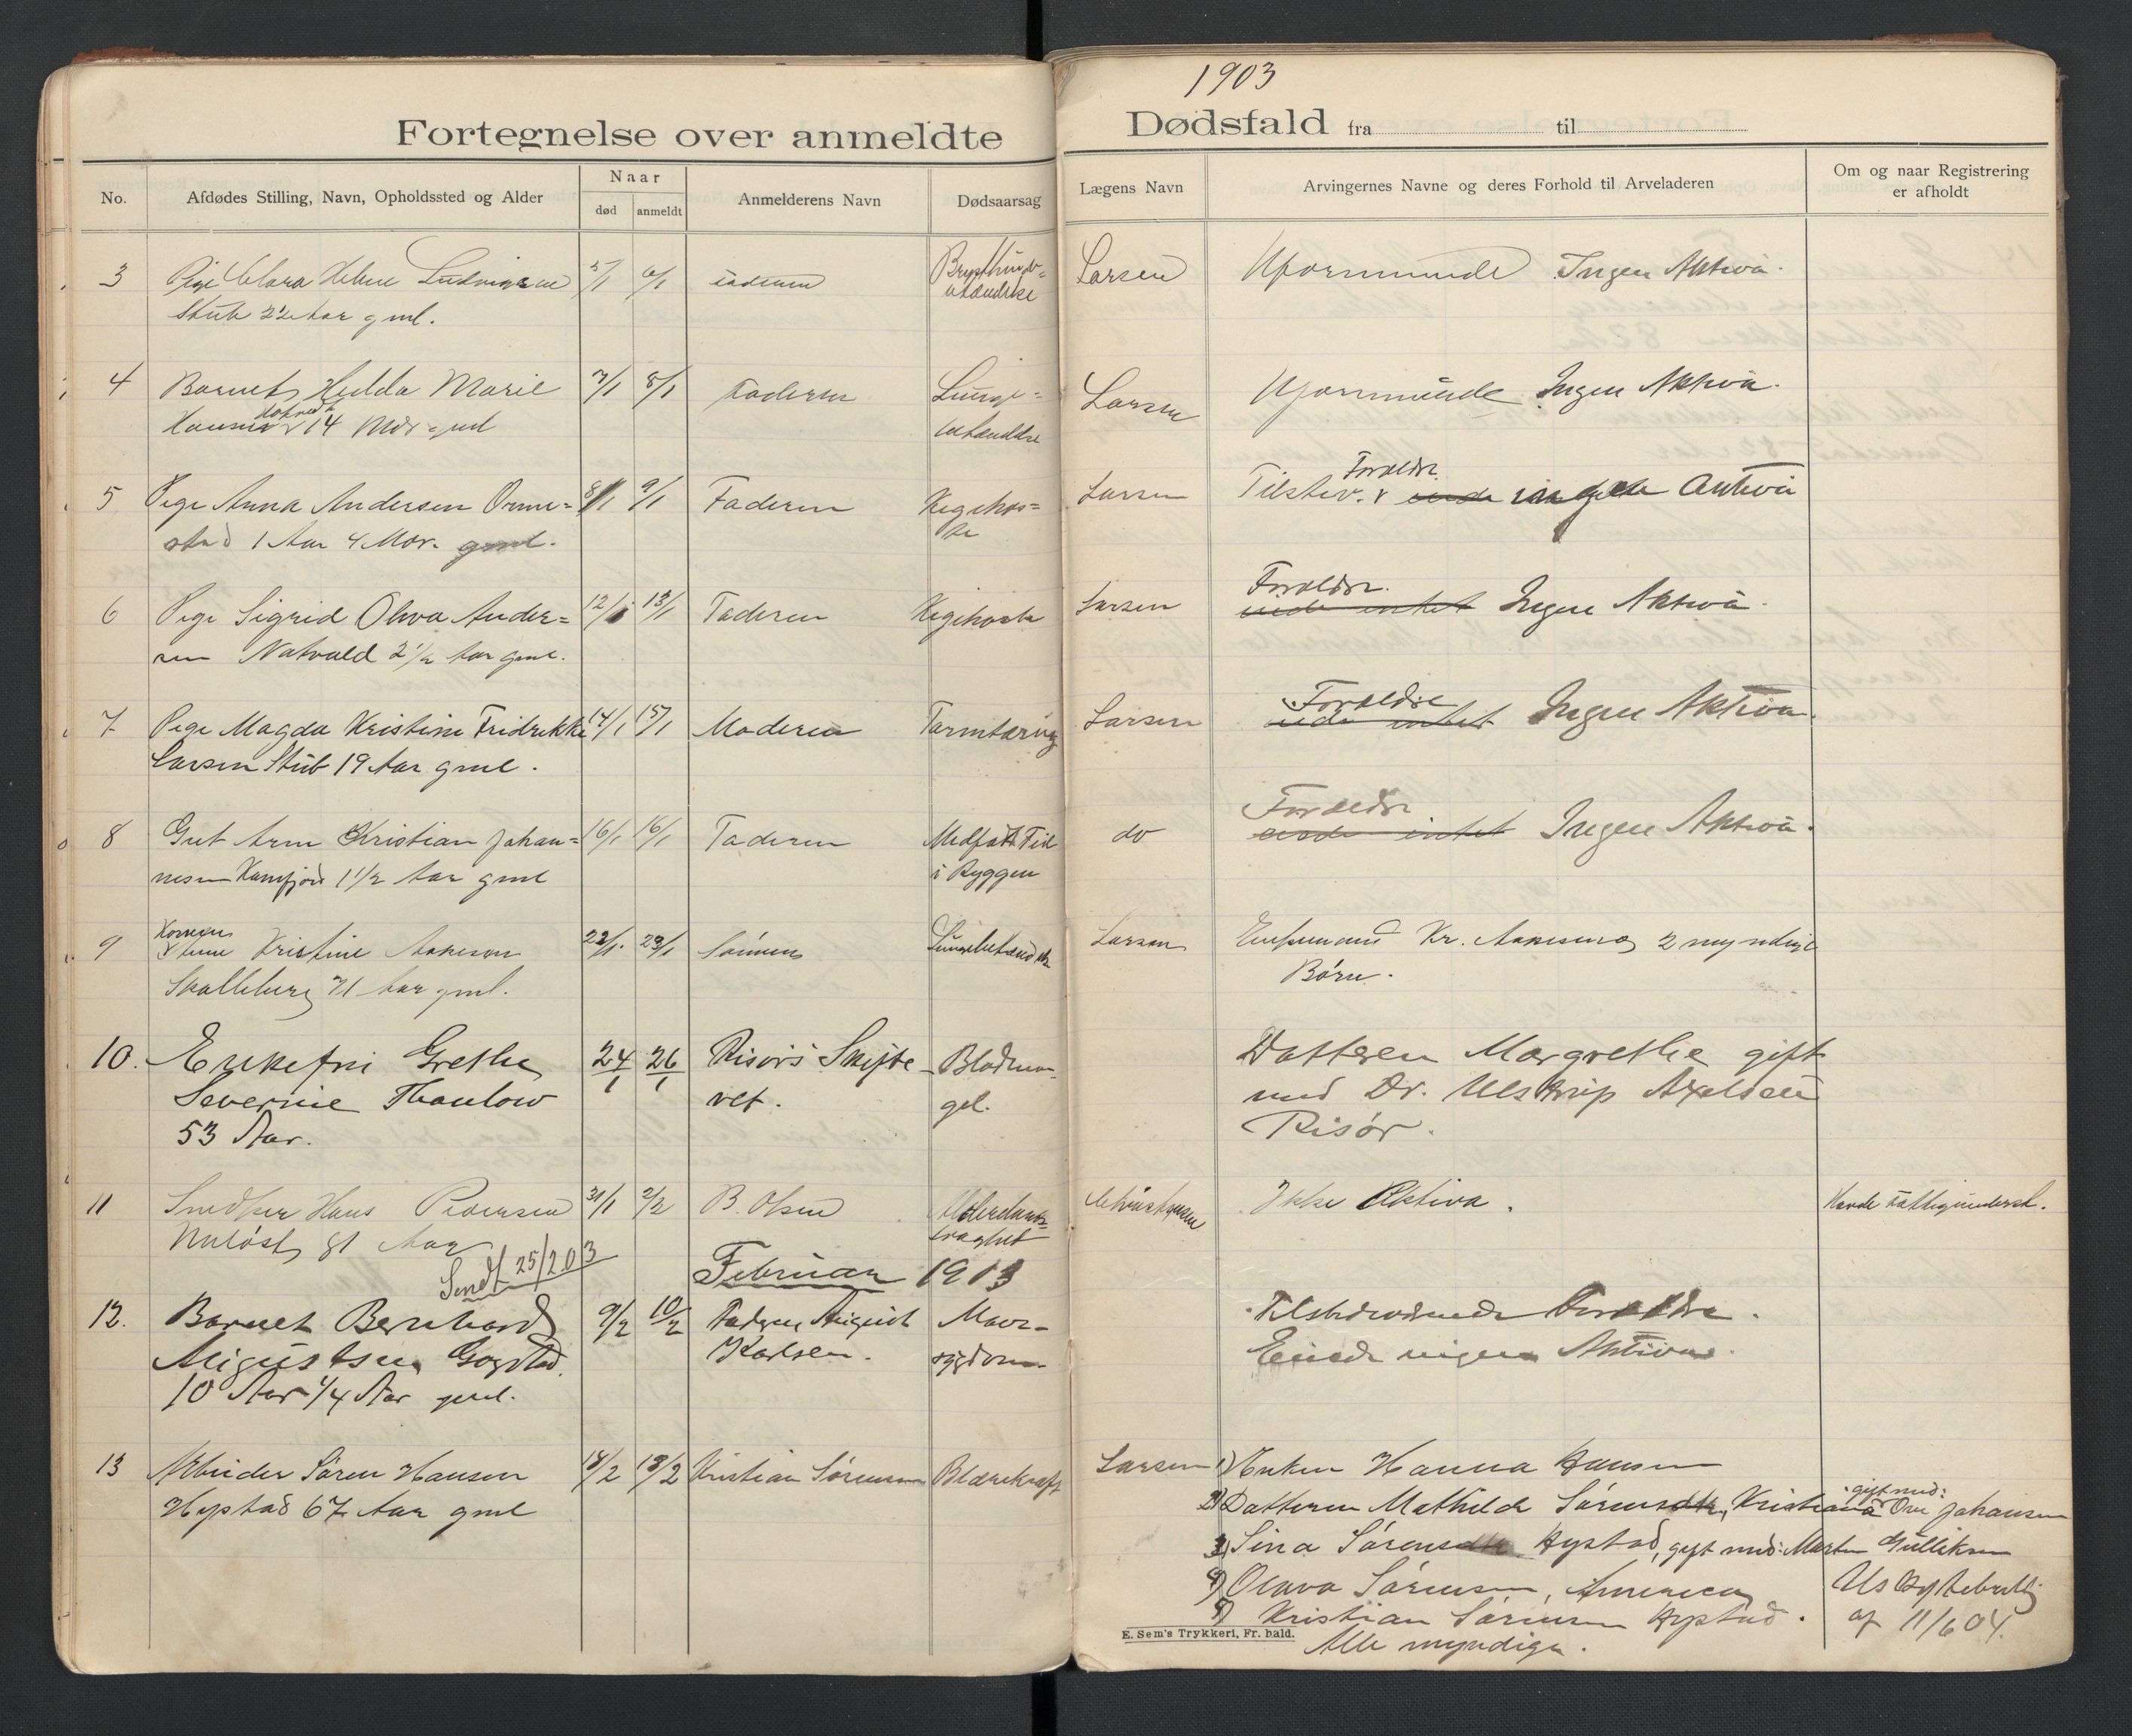 1903
Fortegnelse over anmeldte Dødsfald fra til
No.
Afdødes Stilling, Navn, Opholdssted og Alder
Naar
død
anmeldt
Anmelderens Navn
Dødsaarsag
Lægens Navn
Arvingernes Navne og deres Forhold til Arveladeren
Om og naar Registrering
er afholdt
3 Pige Clara Helene Ludvigsen 5/1 6/1 Faderen Larsen Uformuende Ingen Aktiva.
Stub 22 Aar gml.
4 Barnet Hedda Marie 7/1 8/1 Faderen Lunge= Larsen Uformuende Ingen Aktiva.
Hansen 14 Mdr gml betændelse
Forældre
5 Pige Anna Andersen Orme= 8/1 9/1 Faderen Kighos= Larsen Tilstev. Aktiva
stad 1 Aar 4 Mdr. gml. te
Forældre.
6 Pige Sigrid Oliva Ander= 12/1 13/1 Faderen Kighoste Larsen eide intet Ingen Aktiva.
sen Natvald 2 1/2 Aar gml.
Forældre
7 Pige Magda Kristine Fridrikke 14/1 15/1 Moderen Tarmtæring Larsen eide intet Ingen Aktiva.
Larsen Stub 19 Aar gml.
Forældre
8 Gut Arne Kristian Johan= 16/1 16/1 Faderen Medfødt Feil do eide intet Ingen Aktiva.
nesen Kamfjord 1 1/2 Aar gml i Ryggen
9 Kone Kristine Aakeson 22/1 23/1 Sønnen Lungebetændelse Larsen Enkemand Kr. Aakeson og 2 myndige
Skalleberg 71 Aar gml. Børn.
10. Enkefru Grethe 24/1 26/1 Risørs Skifte- Blodman- Datteren Margrethe gift
Severine Thaulow ret. gel. med Dr. Ulstrup Axelsen
53 Aar. Risør.
11 Hans Pedersen 31/1 2/2 B. Olsen Alderdoms- Christensen Ikke Aktiva. Havde Fattigunderst.
81 Aar svaghet
Sendt 25/2 03
Februar 1903
12. Barnet Bernhard 9/2 10/2 Faderen August Mave- Tilstedeværende Forældre.
Augustsen Gogstad. Karlsen. sygdom Eiede ingen Aktiva.
10 Aar 1/4 Aar gml.
13 Arbeider Søren Hansen 18/2 18/2 Kristian Sørensen Blærekræft Larsen 1) Enken Hanna Hansen
Hystad 67 Aar gml
2) Datteren Mathilde Sørensdtr, Kristiania gift med: Ove Johansen
3) Sina Sørensdtr Hystad, gift med: Martin Gulliksen
4) Olava Sørensen, Amerika
5) Kristian Sørensen Hystad.
Alle myndige.
af 11/6 04.
E. Sem's Trykkeri, Fr. hald.